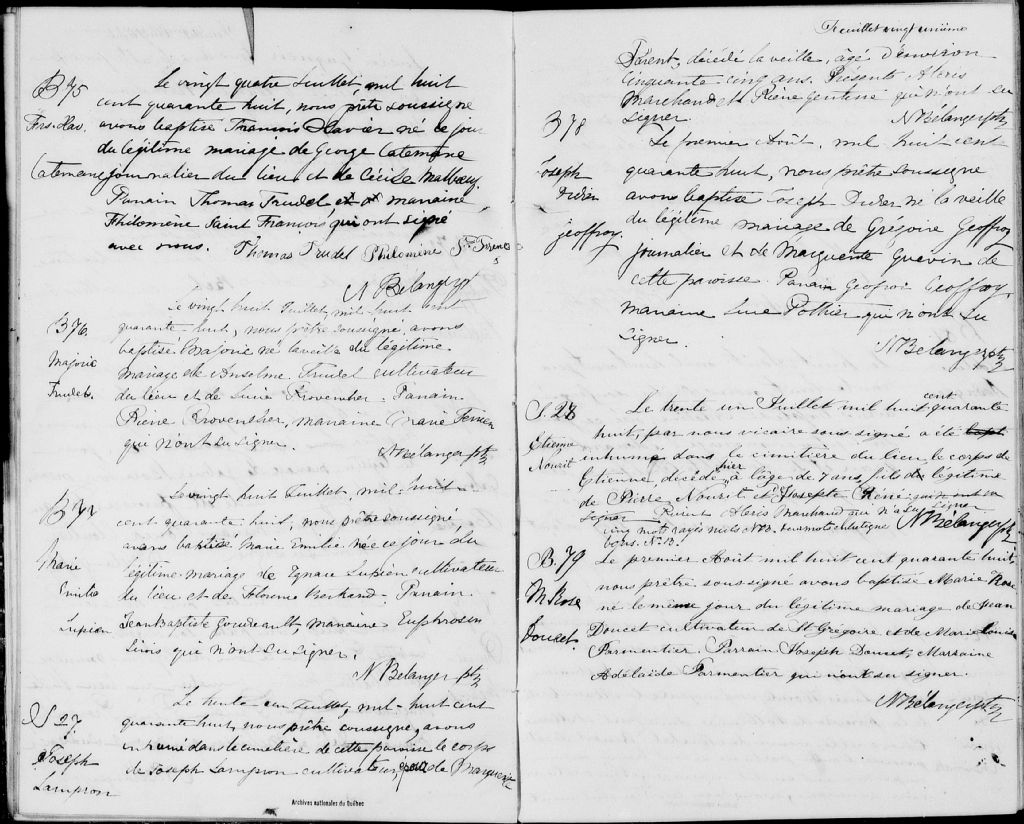 B 75
Frs. Xav.
Catemane
Le vingt quatre Juillet, mil huit
cent quarante huit, nous prêtre soussigné
avons baptisé François Xavier né ce jour
du légitime mariage de George Catemane
journalier du lieu et de Cécile
Parrain Thomas Trudel et marraine
Philomène Saint François qui ont signé
avec nous. Thomas Trudel Philomène St.
N Bélanger ptr
B 76.
Majorie
Trudel.
Le vingt huit Juillet, mil huit cent
quarante huit, nous prêtre soussigné, avons
baptisé Majorie né la veille du légitime
mariage de Anselme Trudel cultivateur
du lieu et de Luce Provencher. Parain
Pierre Provencher, maraine Marie
qui n'ont su signer.
N Bélanger ptr
B 77
Marie
Emilie
Lupien
Le vingt huit Juillet, mil huit
cent quarante huit, nous prêtre soussigné
avons baptisé Marie Emilie née ce jour du
légitime mariage de Ignace Lupien cultivateur
du lieu et de Florence Bertrand. Parain
Jean Baptiste maraine Euphrosin
qui n'ont su signer.
N Bélanger ptr
S 27
Joseph
Lampron
Le trente un Juillet, mil huit cent
quarante huit, nous prêtre soussigné, avons
inhumé dans le cimetière de cette paroisse le corps
de Joseph Lampron cultivateur, époux de Marguerite
Archives nationales du Québec
Feuillet vingt unième
Parent, décédé la veille, âgé d'environ
cinquante cinq ans. Présents Alexis
Marchand et Pierre qui n'ont su
signer. N Bélanger ptr
B 78
Joseph
Didier
Jeoffroy.
Le premier Août, mil huit cent
quarante huit, nous prêtre soussigné
avons baptisé Joseph Didier né la veille
du légitime mariage de Grégoire Geoffroy
journalier et de Marguerite Guevin de
cette paroisse. Parain Geofroi Geoffroy,
maraine Luce Pothier qui n'ont su
signer.
N Bélanger ptr
S. 28
Etienne
Nourit
Le trente un Juillet mil huit cent quarante
huit, par nous vicaire sous signé a été
inhumé dans le cimitière du lieu le corps de
Etienne, décédé hier à l'âge de 7 ans, fils légitime
de Pierre Nourit et Josephte René qui n'ont su
signer Présent Alexis Marchand qui n'a su signer
cinq mots rayés nuls N.B.
bons. N.B. N Bélanger ptr
B. 79
M Rose
Doucet.
Le premier Août mil huit cent quarante huit,
nous prêtre sous signé avons baptisé Marie Rose
né le même jour du légitime mariage de Jean
Doucet cultivateur de St Grégoire et de Marie Louise
Parmentier. Parrain Joseph Doucet, Marraine
Adélaïde Parmentier qui n'ont su signer.
N Bélanger ptr